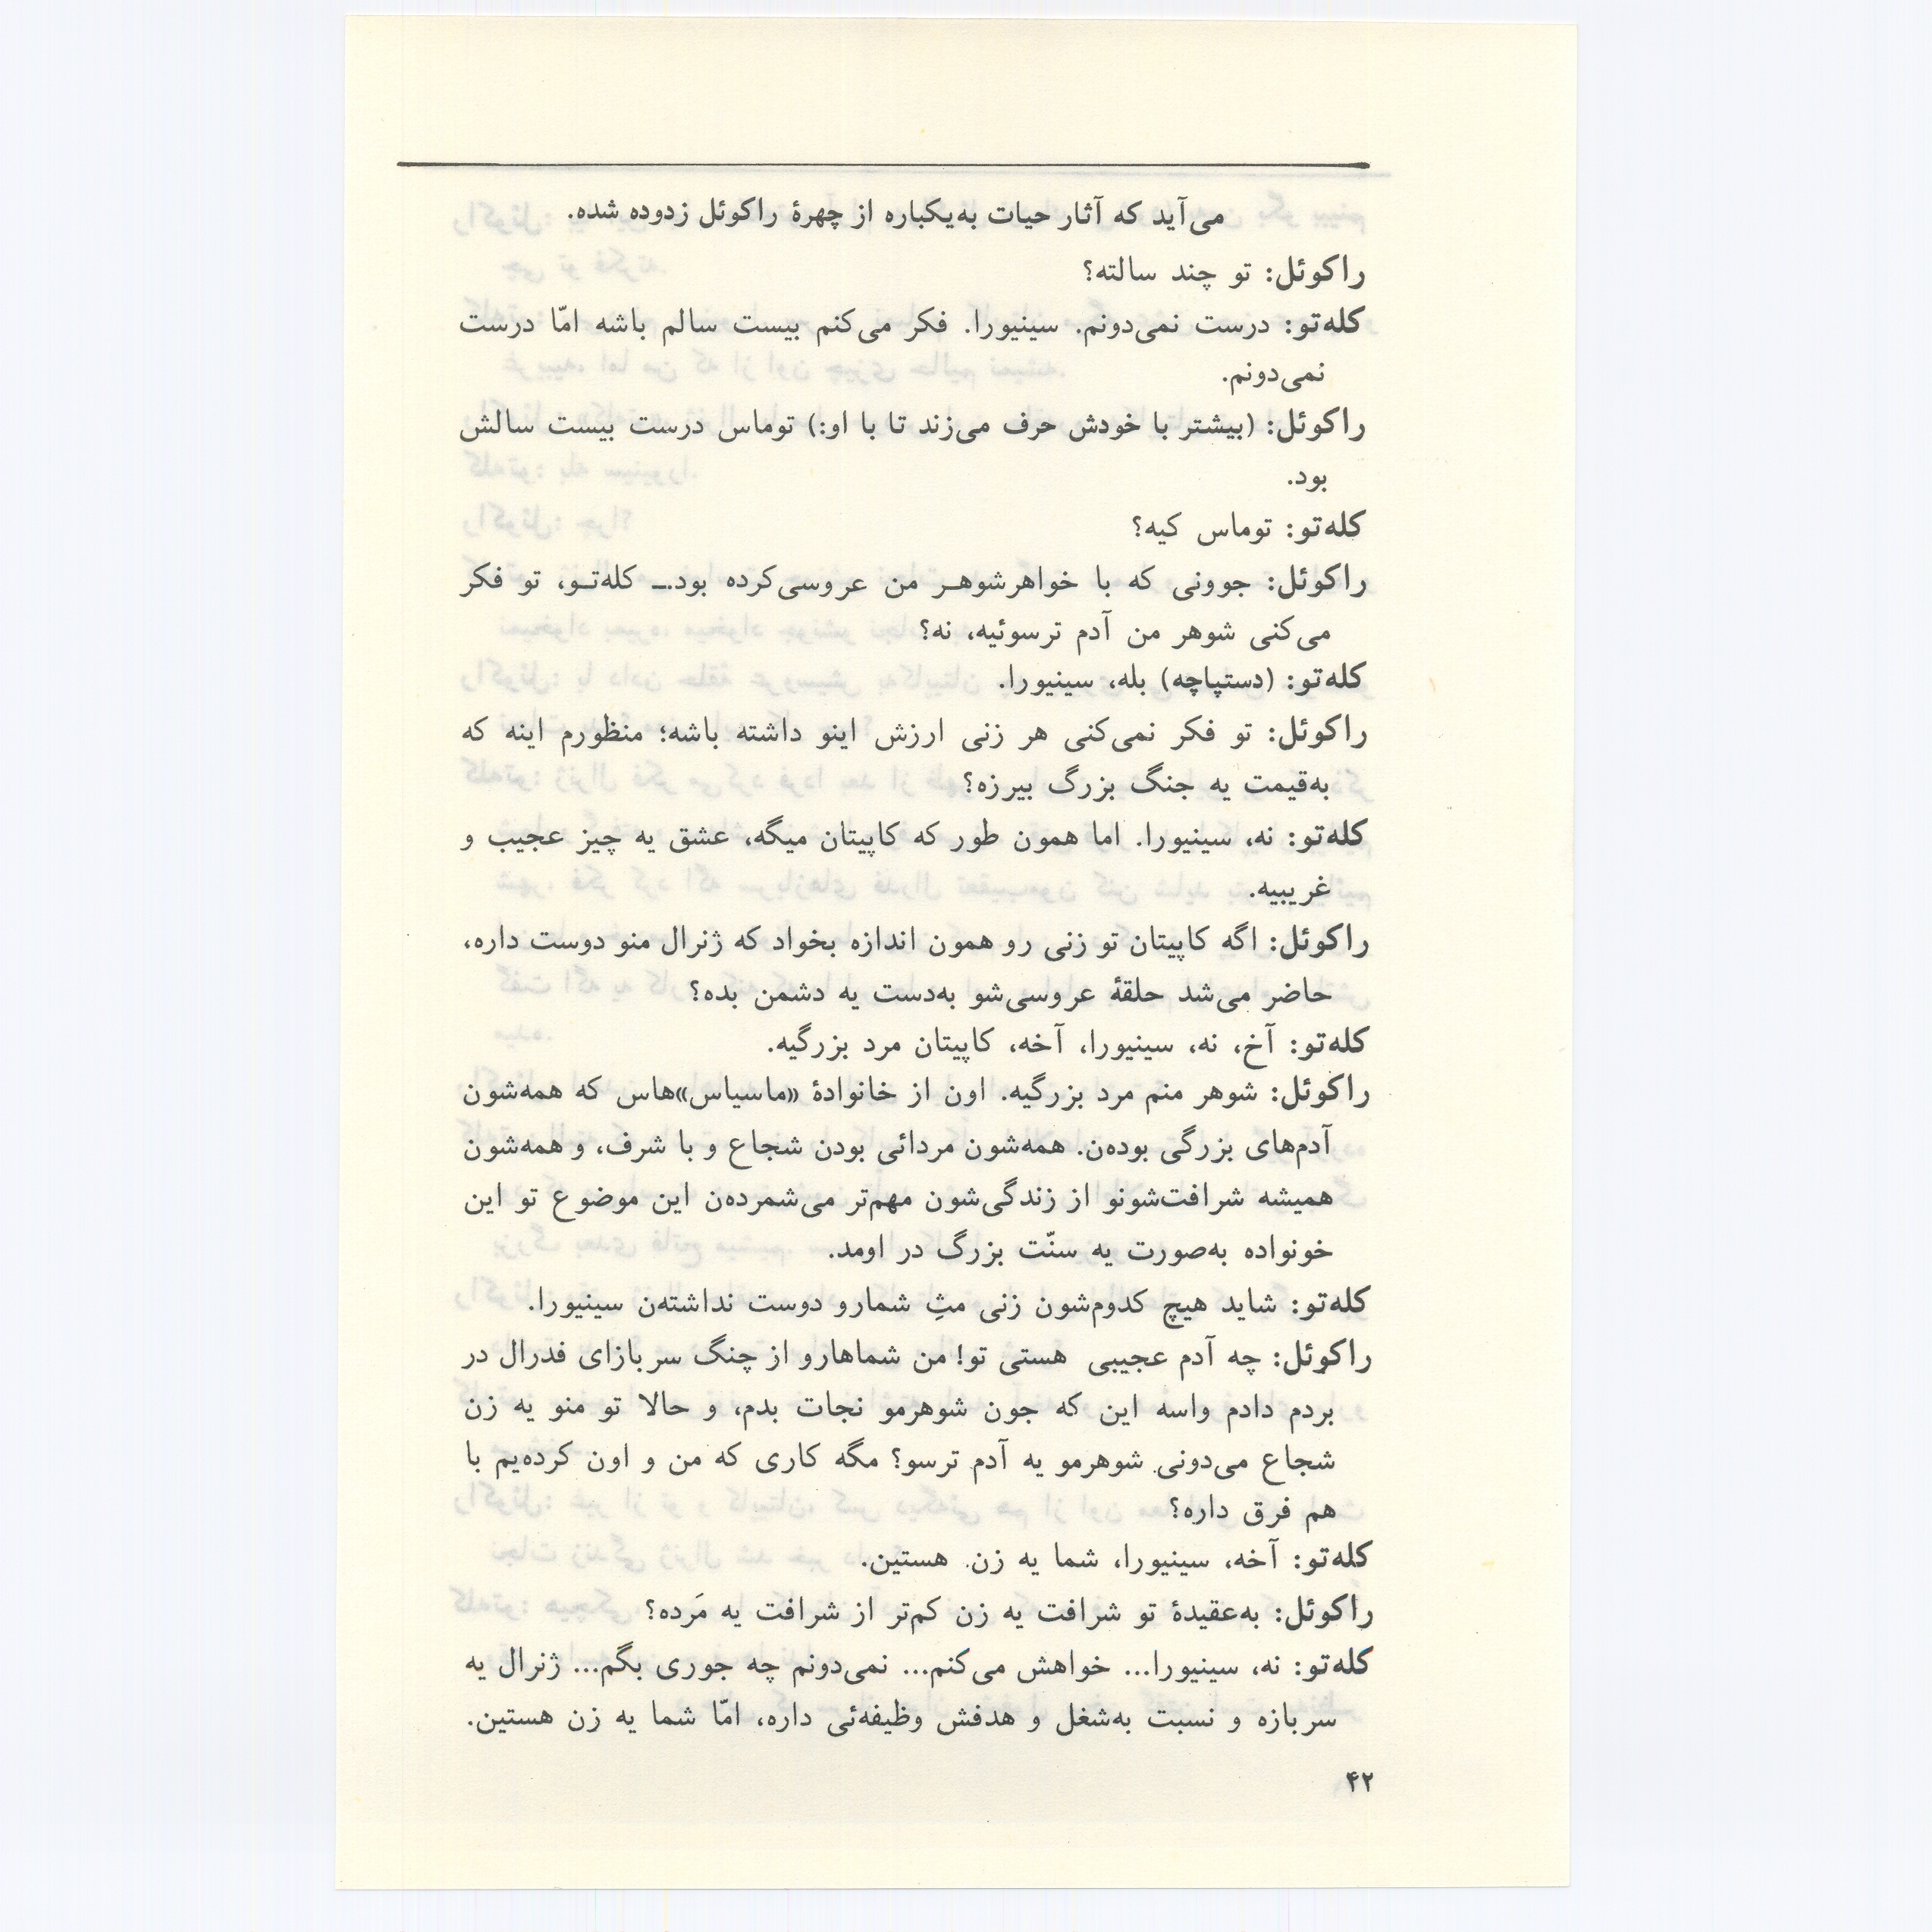 می‌آید که آثار حیات به‌یکباره از چهرهٔ راکوئل زدوده شده.
راکوئل: تو چند سالته؟
کله‌تو: درست نمی‌دونم. سینیورا. فکر می‌کنم بیست سالم باشه امّا درست
نمی‌دونم.
راکوئل: (بیشتر با خودش حرف می‌زند تا با او:) توماس درست بیست سالش
بود.
کله‌تو: توماس کیه؟
راکوئل: جوونی که با خواهرشوهـر من عروسی‌کرده بود.ــ کله‌تـو، تو فکر
می‌کنی شوهر من آدم ترسوئیه، نه؟
کله‌تو: (دستپاچه) بله، سینیورا.
راکوئل: تو فکر نمی‌کنی هر زنی ارزش اینو داشته باشه؛ منظورم اینه که
به‌قیمت یه جنگ بزرگ بیرزه؟
کله‌تو: نه، سینیورا. اما همون طور که کاپیتان میگه، عشق یه چیز عجیب و
غریبیه.
راکوئل: اگه کاپیتان تو زنی رو همون اندازه بخواد که ژنرال منو دوست داره،
حاضر می‌شد حلقهٔ عروسی‌شو به‌دست یه دشمن بده؟
کله‌تو: آخ، نه، سینیورا، آخه، کاپیتان مرد بزرگیه.
راکوئل: شوهر منم مرد بزرگیه. اون از خانوادهٔ «ماسیاس»هاس که همه‌شون
آدم‌های بزرگی بوده‌ن. همه‌شون مردائی بودن شجاع و با شرف، و همه‌شون
همیشه شرافت‌شونو از زندگی‌شون مهم‌تر می‌شمرده‌ن این موضوع تو این
خونواده به‌صورت یه سنّت بزرگ در اومد.
کله‌تو: شاید هیچ کدوم‌شون زنی مثِ شمارو دوست نداشته‌ن سینیورا.
راکوئل: چه آدم عجیبی هستی تو! من شماهارو از چنگ سربازای فدرال در
بردم دادم واسه این که جون شوهرمو نجات بدم، و حالا تو منو یه زن
شجاع می‌دونی شوهرمو یه آدم ترسو؟ مگه کاری که من و اون کرده‌یم با
هم فرق داره؟
کله‌تو: آخه، سینیورا، شما یه زن هستین.
راکوئل: به‌عقیدهٔ تو شرافت یه زن کم‌تر از شرافت یه مَرده؟
کله‌تو: نه، سینیورا... خواهش می‌کنم... نمی‌دونم چه جوری بگم... ژنرال یه
سربازه و نسبت به‌شغل و هدفش وظیفه‌ئی داره، امّا شما یه زن هستین.
۴۲